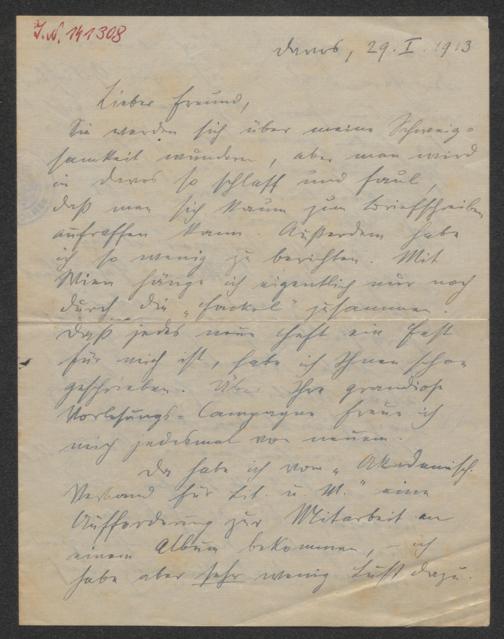 I.N. 141308
Davos, 29. I. 1913
Lieber Freund,
Sie werden sich über meine Schweig-
samkeit wundern, aber man wird
in Davos so schlaff und faul,
daß man sich kaum zum Briefschreiben
aufraffen kann. Außerdem habe
ich so wenig zu berichten. Mit
Wien hänge ich eigentlich nur noch
durch die „Fackel" zusammen.
Daß jedes neue Heft ein Fest
für mich ist, habe ich Ihnen schon
geschrieben. Über Ihre grandiose
Vorlesungs-Campagne freue ich
mich jedesmal von neuem.
Da habe ich vom „Akademisch.
Verband für Lit. u. M." eine
Aufforderung zur Mitarbeit an
einem Album bekommen, – ich
habe aber sehr wenig Lust dazu.